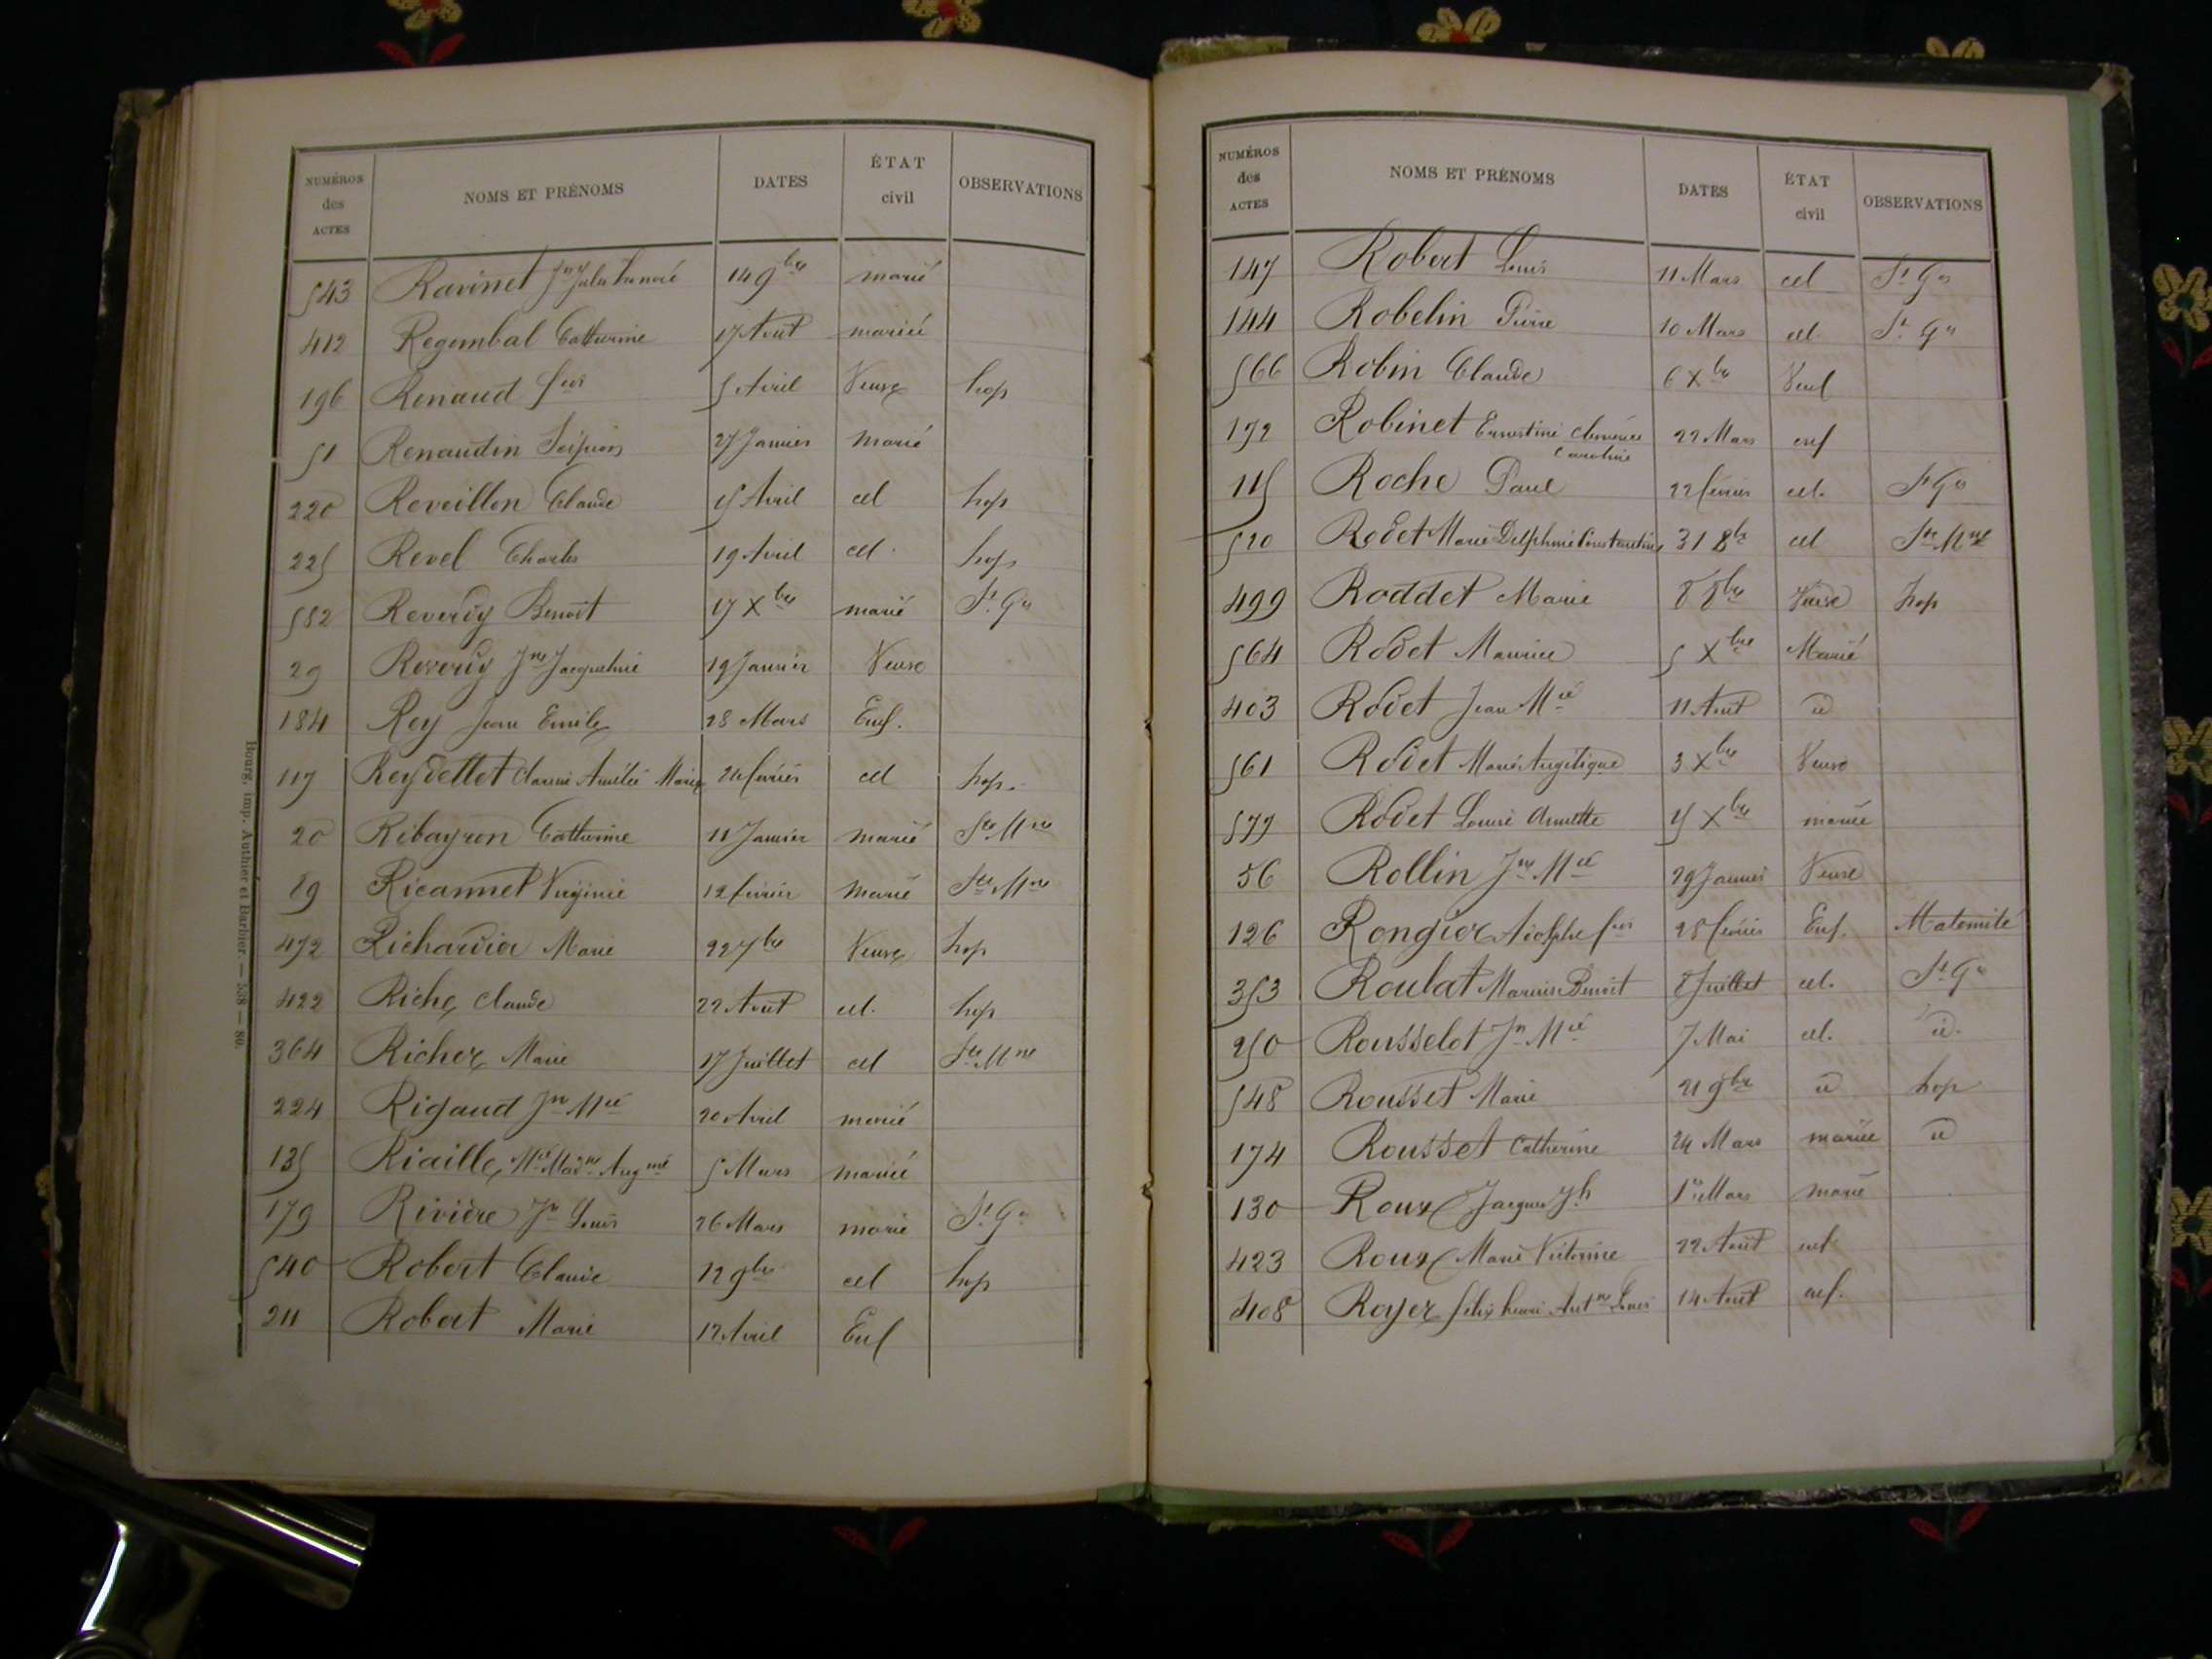 NUMÉROS des ACTES NOMS ET PRÉNOMS DATES ÉTAT civil OBSERVATIONS
543 Ravinet 14 9bre marié
412 Regembal Catherine 17 Aout mariée
196 Renaud fois 5 Avril Veuve hop
51 Renaudin Scipion 27 Janvier marié
220 Reveillon Claude 15 Avril cel hop
225 Revel Charles 19 Avril cel. hop
582 Reverdy Benoit 17 Xbre marié St. Gs
29 Reverdy Jne Jacqueline 19 Janvier Veuve
184 Rey Jean Emile 28 Mars Enf.
117 Reydellet Clarine Amélie Marie 24 février cel hop.
20 Ribayron Catherine 11 Janvier marié Ste Mne
89 Ricannet Virginie 12 février marié Ste Mne
472 Richardier Marie 22 7bre Veuve hop
422 Riche Claude 22 Aout cel. hop
364 Richer Marie 17 Juillet cel Ste Mne
224 Rigaud Jn Mie 20 Avril marié
135 Riaille Mie Madne Augne 5 Mars mariée
179 Rivière Jn Louis 26 Mars marié St. Gs
540 Robert Claude 12 9bre cel hop
211 Robert Marie 12 Avril Enf
Bourg, imp. Authier et Barbier. — 538 — 80.
NUMÉROS des ACTES NOMS ET PRÉNOMS DATES ÉTAT civil OBSERVATIONS
147 Robert Louis 11 Mars cel St. Gs
144 Robelin Pierre 10 Mars cel. St. Gs
566 Robin Claude 6 Xbre Veuf
172 Robinet Ernestine Clémence 22 Mars enf
Caroline
115 Roche Paul 22 février cel. St Gs
520 Rodet Marie Delphine Constantine 31 8bre cel Ste Mne
499 Roddet Marie 8 8bre Veuve hop
564 Rodet Maurice 5 Xbre Marié
403 Rodet Jean Mie 11 Aout id
561 Rodet Marie Angélique 3 Xbre Veuve
577 Rodet Louise Annette 15 Xbre mariée
56 Rollin Jne Mie 29 Janvier Veuve
126 Rongier Adolphe fois 28 février Enf. Maternité
353 Roulat Marius Benoit 8 Juillet cel. St. Gs
250 Rousselot Jn Mie 7 Mai cel. id.
548 Rousset Marie 21 9bre id hop
174 Rousset Catherine 24 Mars mariée id
130 Roux Jacques Jh 1er Mars marié
423 Roux Marie Victorine 22 Aout enf
408 Royer félix henri Antne Louis 14 Aout enf.